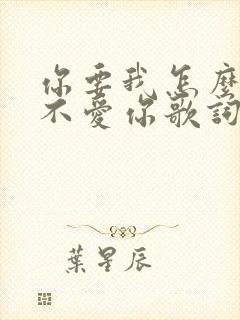 你要我怎麼
不愛你歌詞
葉星辰